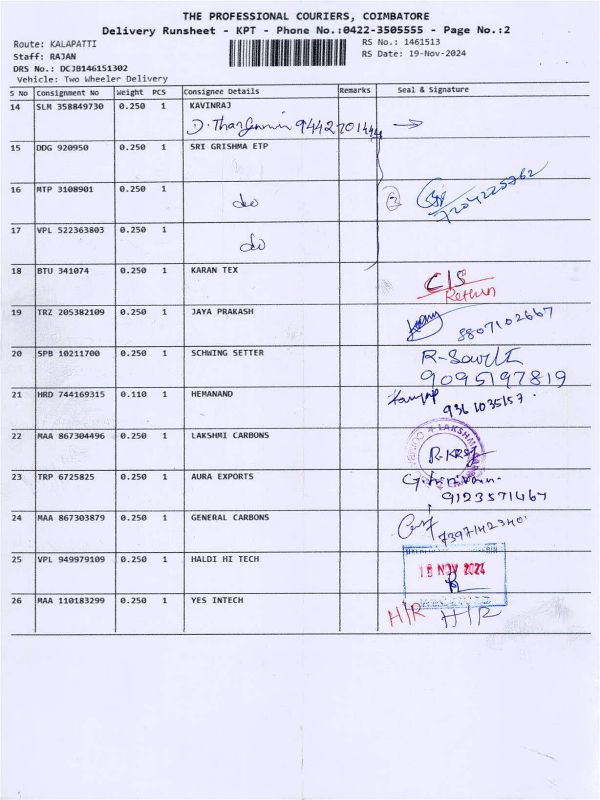 THE PROFESSIONAL COURIERS, COIMBATORE
Delivery Runsheet - KPT - Phone No.:0422-3505555 - Page No.:2
Route: KALAPATTI
RS No.: 1461513
Staff: RAJAN
RS Date: 19-Nov-2024
DRS No.: DCJB146151302
Vehicle: Two Wheeler Delivery
S No Consignment No Weight PCS Consignee Details Remarks Seal & Signature
14 SLM 358849730 0.250 1 KAVINRAJ
15 DDG 920950 0.250 1 SRI GRISHMA ETP
16 MTP 3108901 0.250 1
do
7204225762
17 VPL 522363803 0.250 1
do
18 BTU 341074 0.250 1 KARAN TEX
C/S
Return
19 TRZ 205382109 0.250 1 JAYA PRAKASH
8807102667
20 SPB 10211700 0.250 1 SCHWING SETTER
9095197819
21 HRD 744169315 0.110 1 HEMANAND
9361035157
22 MAA 867304496 0.250 1 LAKSHMI CARBONS
23 TRP 6725825 0.250 1 AURA EXPORTS
9123571467
24 MAA 867303879 0.250 1 GENERAL CARBONS
7397142340
25 VPL 949979109 0.250 1 HALDI HI TECH
NOV 2024
26 MAA 110183299 0.250 1 YES INTECH
H/R H/R